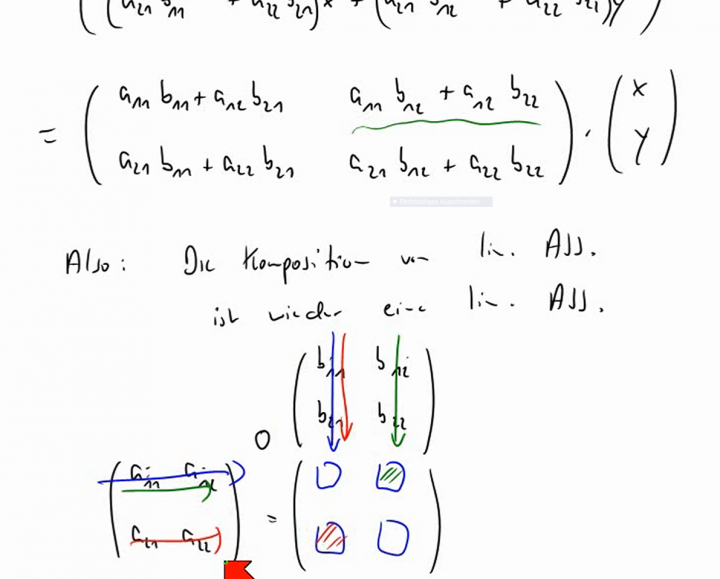 ( (a₂₁ b₁₁ + a₂₂ b₂₁)x + (a₂₁ b₁₂ + a₂₂ b₂₂)y )
= ( a₁₁ b₁₁ + a₁₂ b₂₁ a₁₁ b₁₂ + a₁₂ b₂₂ ) · ( x )
( a₂₁ b₁₁ + a₂₂ b₂₁ a₂₁ b₁₂ + a₂₂ b₂₂ ) ( y )
Also: Die Komposition von lin. Abb.
ist wieder eine lin. Abb.
( b₁₁ b₁₂ )
( b₂₁ b₂₂ )
o
( a₁₁ a₁₂ )
=
( a₂₁ a₂₂ )